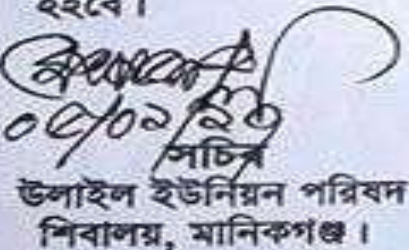 হইবে।
সচিব
উলাইল ইউনিয়ন পরিষদ
শিবালয়, মানিকগঞ্জ।